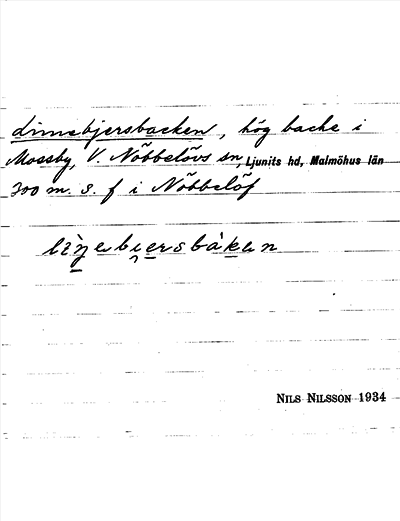 Linnebjersbacken, hög backe i
Mossby, V. Nöbbelövs sn, Ljunits hd, Malmöhus län
300 m. s. f i Nöbbelöf
NILS NILSSON 1934